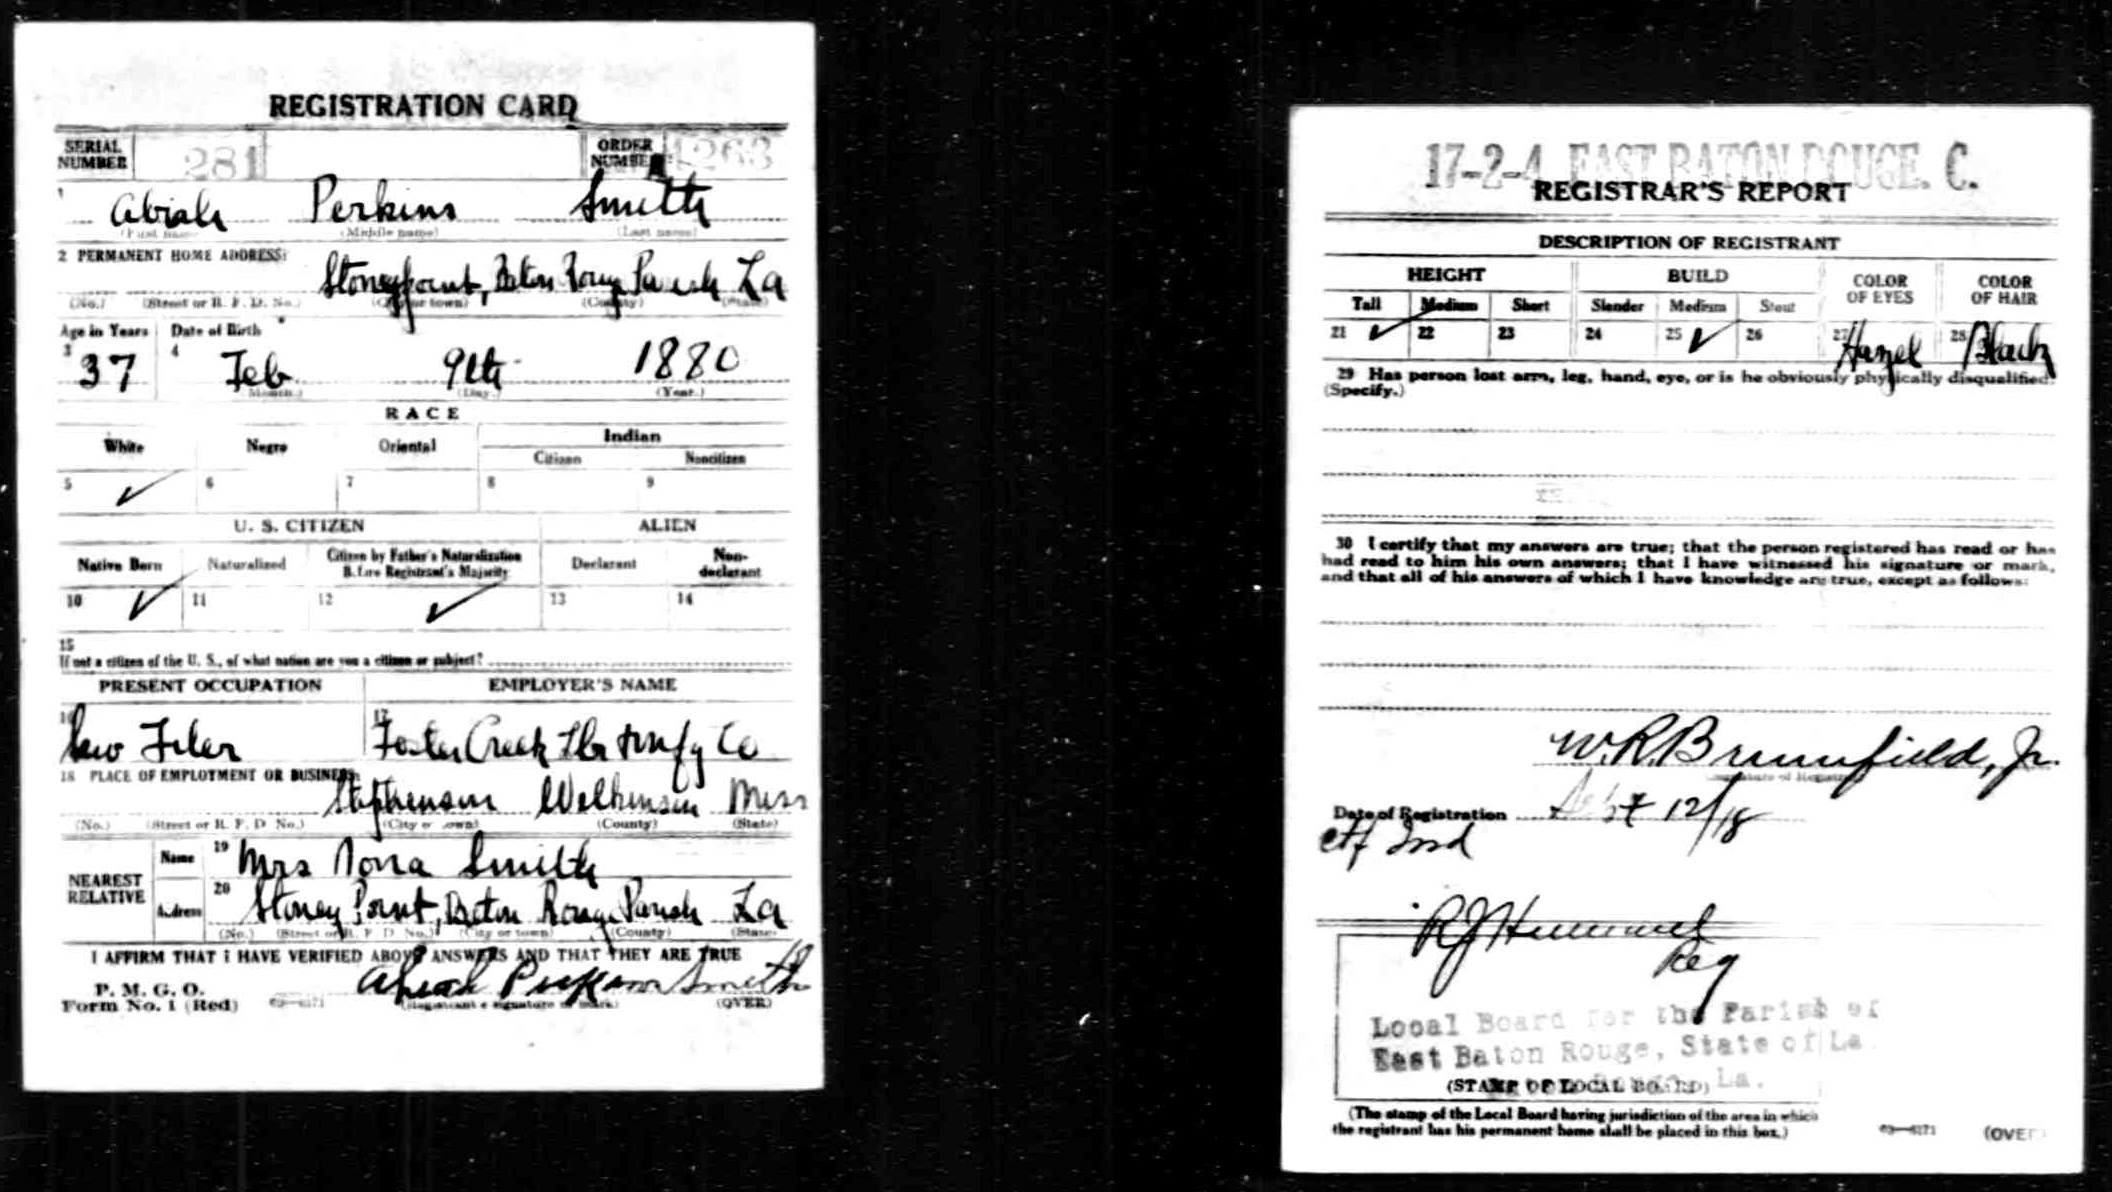 REGISTRATION CARD
SERIAL NUMBER 281 ORDER NUMBER 4263
1 Abiah Perkins Smith
(First name) (Middle name) (Last name)
2 PERMANENT HOME ADDRESS:
Stoneypoint, Baton Rouge Parish La
(No.) (Street or R. F. D. No.) (City or town) (County) (State)
Age in Years Date of Birth
3 37 4 Feb 9th 1880
(Month.) (Day.) (Year.)
RACE
White Negro Oriental Indian
Citizen Noncitizen
5 ✓ 6 7 8 9
U. S. CITIZEN ALIEN
Native Born Naturalized Citizen by Father's Naturalization Before Registrant's Majority Declarant Non-declarant
10 ✓ 11 12 ✓ 13 14
15
If not a citizen of the U. S., of what nation are you a citizen or subject?
PRESENT OCCUPATION EMPLOYER'S NAME
16 Saw Filer 17 Foster Creek Lbr & Mnfg Co
18 PLACE OF EMPLOYMENT OR BUSINESS:
Stephenson Wilkinson Miss
(No.) (Street or R. F. D. No.) (City or town) (County) (State)
NEAREST RELATIVE Name 19 Mrs Nona Smith
Address 20 Stoney Point, Baton Rouge Parish La
(No.) (Street or R. F. D. No.) (City or town) (County) (State)
I AFFIRM THAT I HAVE VERIFIED ABOVE ANSWERS AND THAT THEY ARE TRUE
P. M. G. O.
Form No. 1 (Red) 03—6171 Abiah Perkins Smith
(Registrant's signature or mark) (OVER)
17-2-4 EAST BATON ROUGE. C.
REGISTRAR'S REPORT
DESCRIPTION OF REGISTRANT
HEIGHT BUILD COLOR OF EYES COLOR OF HAIR
Tall Medium Short Slender Medium Stout
21 ✓ 22 23 24 25 ✓ 26 27 Hazel 28 Black
29 Has person lost arm, leg, hand, eye, or is he obviously physically disqualified?
(Specify.)
30 I certify that my answers are true; that the person registered has read or has
had read to him his own answers; that I have witnessed his signature or mark,
and that all of his answers of which I have knowledge are true, except as follows:
W. R. Brumfield, Jr.
(Signature of Registrar)
Date of Registration Sept 12/18
R J Hummel
Reg
Local Board for the Parish of
East Baton Rouge, State of La.
(STAMP OF LOCAL BOARD)
(The stamp of the Local Board having jurisdiction of the area in which
the registrant has his permanent home shall be placed in this box.)
03—6171 (OVER)